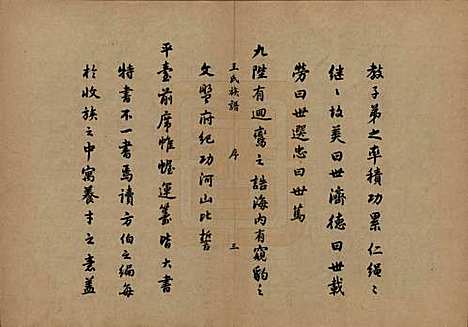 教子弟之率積功累仁繩〻
继〻故美曰世濟德曰世載
勞曰世選忠曰世篤
九陛有迴鸞之誥海内有窺豹之
王氏族譜 序 三
文壂府紀功河山比誓
平臺前席帷幄運籌皆大書
特書不一書焉讀方伯之編每
於收族之中寓養才之意蓋